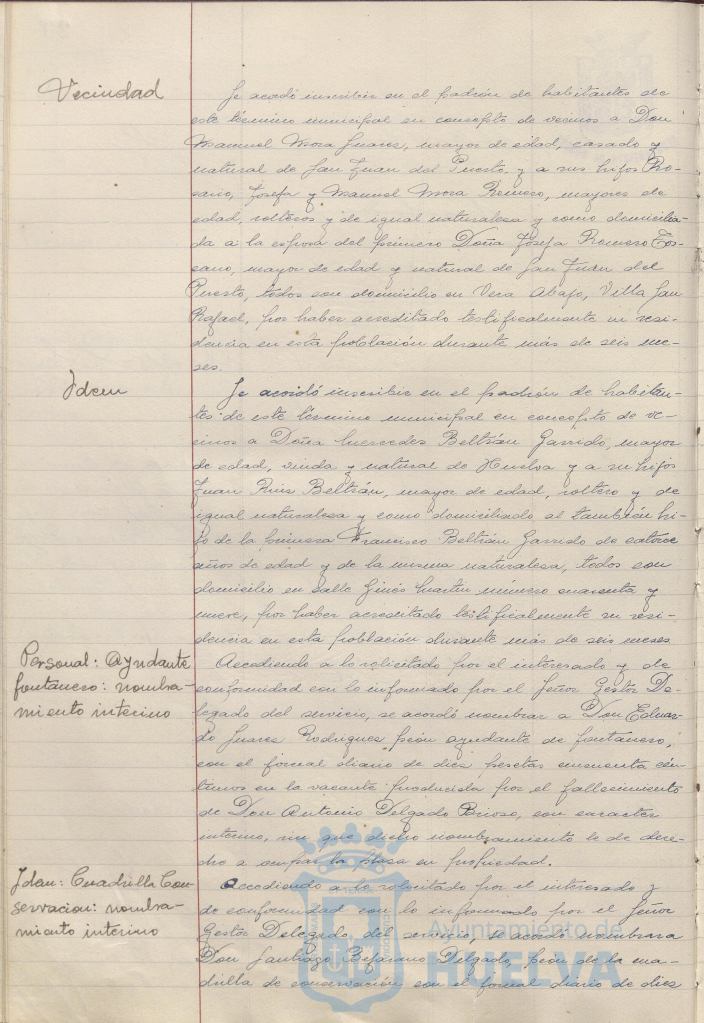 Vecindad
Se acordó inscribir en el padrón de habitantes de
este término municipal en concepto de vecinos a Don
Manuel Mora Juares, mayor de edad, casado y
natural de San Juan del Puerto, y a sus hijos Ro-
sario, Josefa y Manuel Mora Romero, mayores de
edad, solteros y de igual naturalesa y como domicilia-
da a la esposa del primero Doña Josefa Romero Tos-
cano, mayor de edad y natural de San Juan del
Puerto, todos con domicilio en Vera Abajo, Villa San
Rafael, por haber acreditado testificalmente su resi-
dencia en esta población durante más de seis me-
ses.
Idem
Se acordó inscribir en el padrón de habitan-
tes de este término municipal en concepto de ve-
cinos a Doña Mercedes Beltrán Garrido, mayor
de edad, viuda y natural de Huelva y a su hijos
Juan Ruis Beltrán, mayor de edad, soltero y de
igual naturalesa y como domiciliado al también hi-
jo de la primera Francisco Beltrán Garrido de catorce
años de edad y de la misma naturalesa, todos con
domicilio en calle Ginés Martín número cuarenta y
nueve, por haber acreditado testificalmente su resi-
dencia en esta población durante más de seis meses
Personal: Ayudante
fontanero: nombra-
miento interino
Accediendo a lo solicitado por el interesado y de
conformidad con lo informado por el Señor Gestor De-
legado del servicio, se acordó nombrar a Don Eduar-
do Juares Rodrigues peón ayudante de fontanero,
con el jornal diario de dies pesetas cincuenta cén-
timos en la vacante producida por el fallecimiento
de Don Antonio Delgado Brioso, con caracter
interino, sin que dicho nombramiento le de dere-
cho a ocupar la plasa en propiedad.
Idem: Cuadrilla Con-
servacion: nombra-
miento interino
Accediendo a lo solicitado por el interesado y
de conformidad con lo informado por el Señor
Gestor Delegado del servicio, se acordó nombrar a
Don Santiago Bejarano Delgado, peón de la cua-
drilla de conservación con el jornal diario de dies
Ayuntamiento de
HUELVA